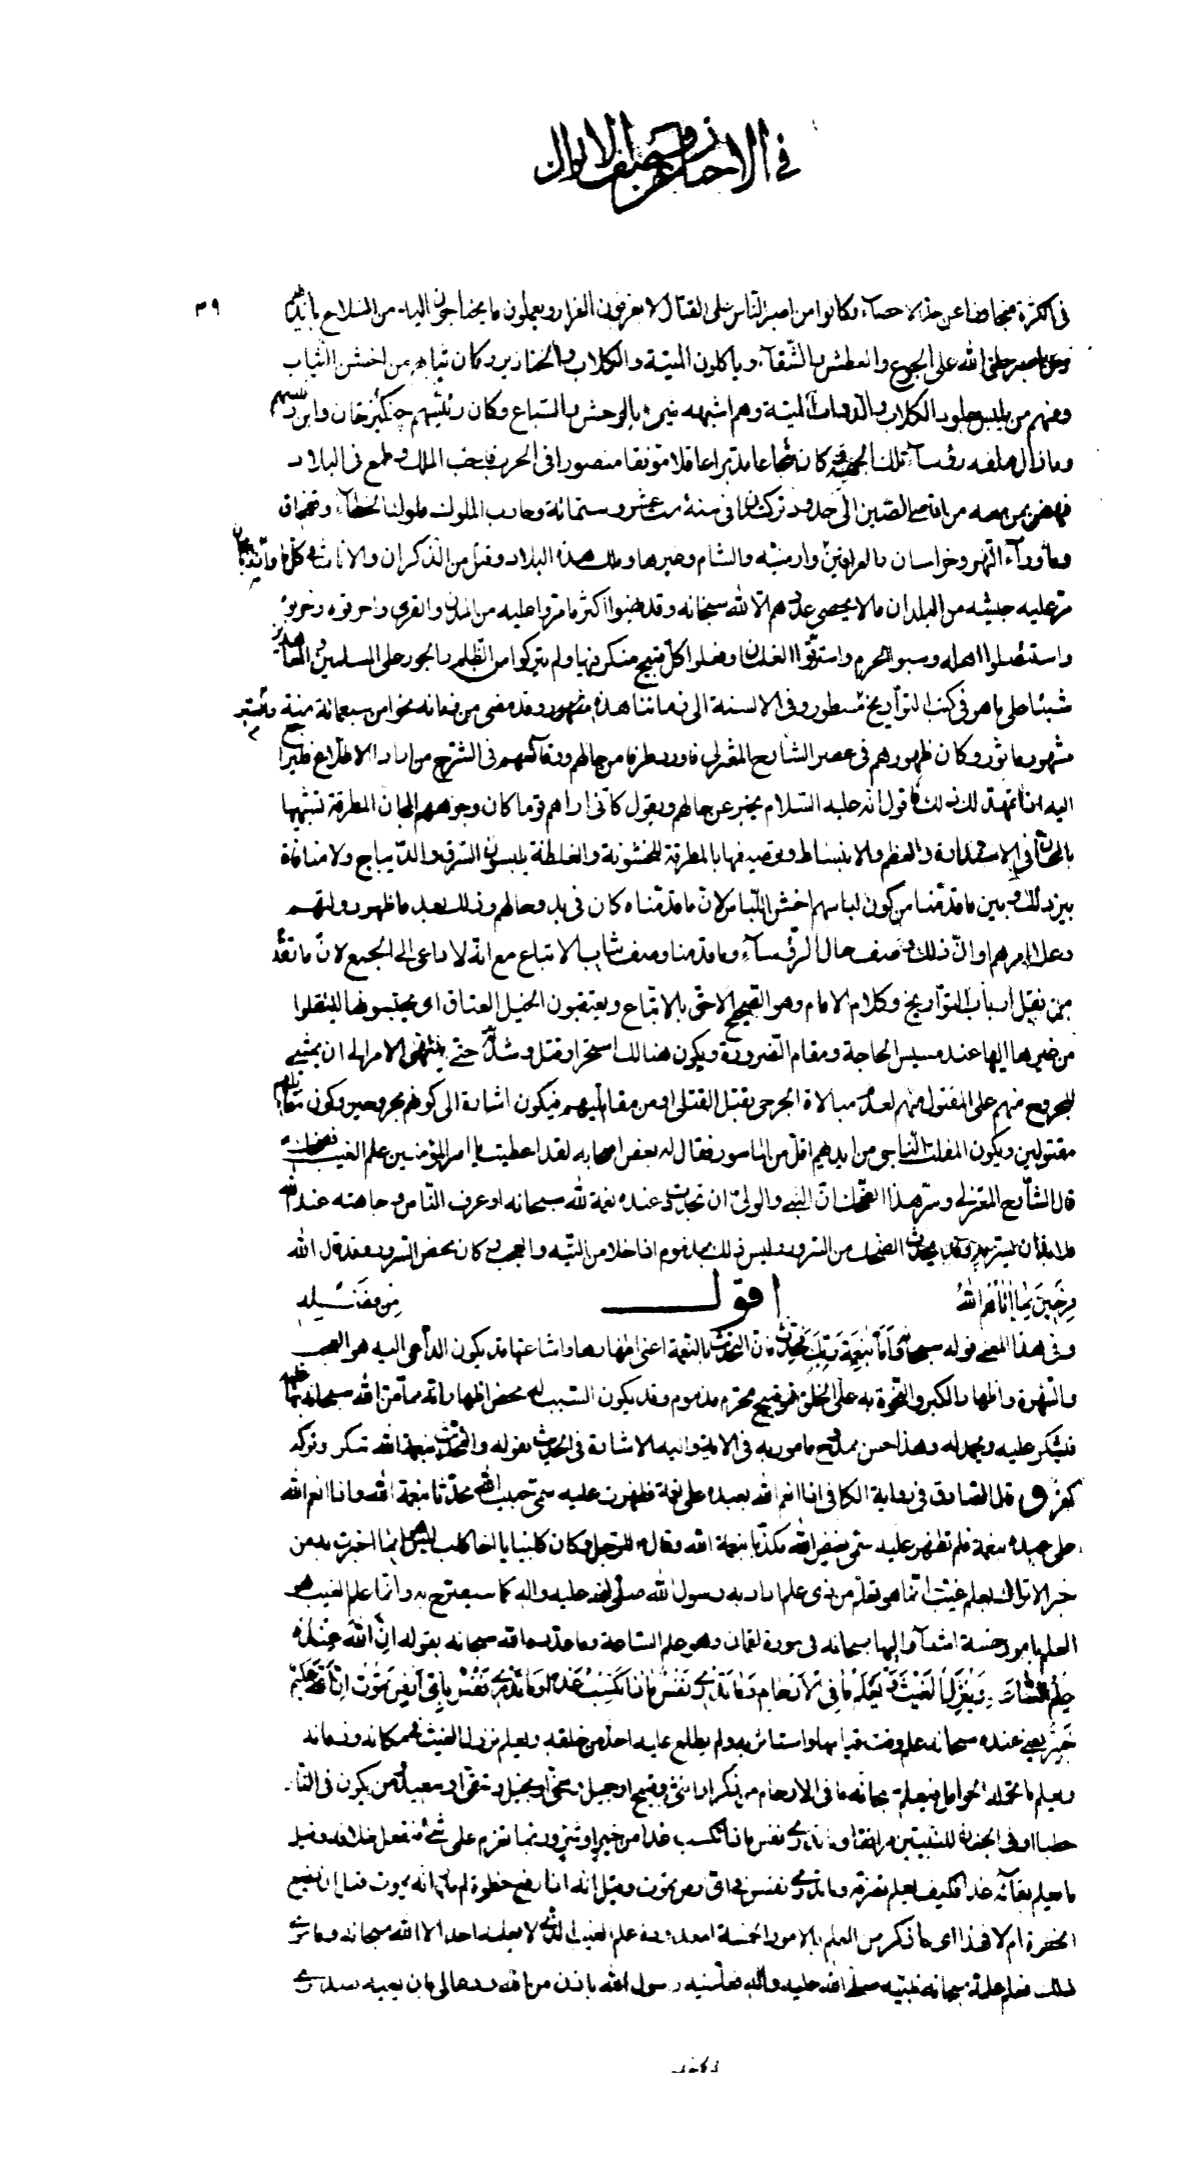 في الاخبار عن وصف الاتراك
٣٩
في الكثرة متجاوزا عن حد الاحصاء وكانوا من اصبر الناس على القتال لا يعرفون الفرار ويعملون ما يحتاجون اليه من السلاح بايديهم
خلق الله على الجوع والعطش والشقاء وياكلون الميتة والكلاب والخنازير وكان ثيابهم من اخشن الثياب
ومنهم من يلبس جلود الكلاب والدواب الميتة وهم اشبه شيء بالوحش والسباع وكان رئيسهم چنكيز خان وابن رئيسهم
وما زال سلفه رؤساء تلك الجهة كان شجاعا مدبرا عاقلا موفقا منصورا في الحرب فاحب الملك وطمع في البلاد
فنهض بمن معه من اقاصي الصين الى حدود تركستان في سنة ست عشر وستمائة وحارب الملوك ملوك الخطاء وقفجاق
وماوراء النهر وخراسان والعراقين وارمنيه والشام وغيرها وملك هذه البلاد وقتل من الذكران والاناث في كل
مر عليه جيشه من البلدان ما لا يحصى عددهم الا الله سبحانه وقد نهبوا اكثر ما مروا عليه من المدن والقرى واحرقوه وخربوه
واستئصلوا اهله وسبوا الحرم واسترقوا الغلمان وفعلوا كل قبيح منكر فيها ولم يتركوا من الظلم والجور على المسلمين والمعاهدين
شيئا على ما هو في كتب التواريخ مسطور وفي الالسنة الى زماننا هذا مشهور وقد مضى من زمانه نحوا من سبعمائة سنة
مشهور ماثور وكان ظهورهم في عصر الشارح المعتزلي فاورد طرفا من حالهم ووقائعهم في الشرح من اراد الاطلاع فليراجع
اليه اذا تمهد لك ذلك فاقول انه عليه السلام يخبر عن حالهم ويقول كاني اراهم قوما كان وجوههم المجان المطرقة تشبيهها
بالمجان في الاستدارة والعظم والانبساط وتوصيفها بالمطرقة للخشونة والغلظة يلبسون السرق والديباج ولا منافاة
بين ذلك وبين ما قدمنا من كون لباسهم اخشن اللباس لان ما قدمناه كان في بدو حالهم وذلك بعد ما ظهور دولتهم
وعلا امرهم او ان ذلك وصف حال الرؤساء وما قدمنا وصف ثياب الاتباع مع انه لا داعي الى الجمع لان ما تقدم
من نقل ارباب التواريخ وكلام الامام وهو الصحيح الاحق بالاتباع ويعتقبون الخيل العتاق اي يحتبسونها لينتقلوا
من غيرها اليها عند مسيس الحاجة ومقام الضرورة ويكون هنالك استحرار قتل وشدته حتى ينتهى الامر الى ان يمشى
المجروح منهم على المقتول منهم لعدم مبالاة الجرحى بقتل القتلى او من مقابليهم فيكون اشارة الى كونهم مجروحين وكون مقابلهم
مقتولين ويكون المفلت الناجي من ايديهم اقل من الماسور فقال له بعض اصحابه لقد اعطيت يا امير المؤمنين علم الغيب فضحك
قال الشارح المعتزلي وسر هذا الضحك ان النبي والولي ان تحدث عنده نعمة لله سبحانه او عرف الناس وجاهته عند الله
فلا بد ان يسر بذلك وقد يحدث الضحك من السرور وليس ذلك بمذموم اذا خلا من التيه والعجب وكان محض السرور وقد قال الله
فرحين بما اتاهم الله من فضله اقول
وفي هذا المعنى قوله سبحانه واما بنعمة ربك فحدث فان التحدث بالنعمة اعنى اظهارها واشاعتها قد يكون الداعى اليه هو العجب
والشهرة واظهار الكبر والنخوة به على الخلق فهو قبيح محرم مذموم وقد يكون السبب له محض اظهار انه مما من الله سبحانه بها عليه
فيشكر عليه ويحمد له وهذا حسن ممدوح مامور به في الاية واليه الاشارة في الحديث بقوله والتحدث بنعمة الله شكر وتركه
كفر وقال الصادق في رواية الكافى اذا انعم الله بعبده على نعمة فظهرت عليه سمى حبيب الله محدثا بنعمة الله واذا انعم الله
على عبده بنعمة فلم تظهر عليه سمى بغيض الله مكذبا بنعمة الله وقال للرجل وكان كلبيا يا اخا كلب ليس ما اخبرت به من
خبر الاتراك بعلم غيب انما هو تعلم من ذى علم اراد به رسول الله صلى الله عليه واله كما سيصرح به وانما علم الغيب هو
العلم بامور خمسة اشار اليها سبحانه في سورة لقمان وهو علم الساعة وما عدده الله سبحانه بقوله ان الله عنده
علم الساعة وينزل الغيث ويعلم ما في الارحام وما تدرى نفس ماذا تكسب غدا وما تدرى نفس باى ارض تموت ان الله عليم
خبير يعنى عنده سبحانه علم وقت قيامها واستاثر به ولم يطلع عليه احد من خلقه ويعلم نزول الغيث في مكانه وزمانه
ويعلم ما تحمله الحوامل فيعلم سبحانه ما في الارحام من ذكر او انثى وقبيح او جميل وسخى او بخيل وشقى او سعيد ومن يكون في النار
حطبا او في الجنان للنبيين مرافقا وما تدرى نفس ماذا تكسب غدا من خير او شر وربما تعزم على شئ فتفعل خلافه وقيل
ما يعلم بقائه غدا فكيف يعلم تصرفه وما تدرى نفس باى ارض تموت وقيل انه اذا رفع خطوة لم يدر انه يموت قبل ان يضع
الخطوة ام لا فهذا اى ما ذكر من العلم بالامور الخمسة المعدودة علم الغيب الذى لا يعلمه احد الا الله سبحانه وما سوى
ذلك فعلم علمه سبحانه نبيه صلى الله عليه واله فعلمنيه رسول الله باذن من الله ودعا لى بان يعيه صدرى